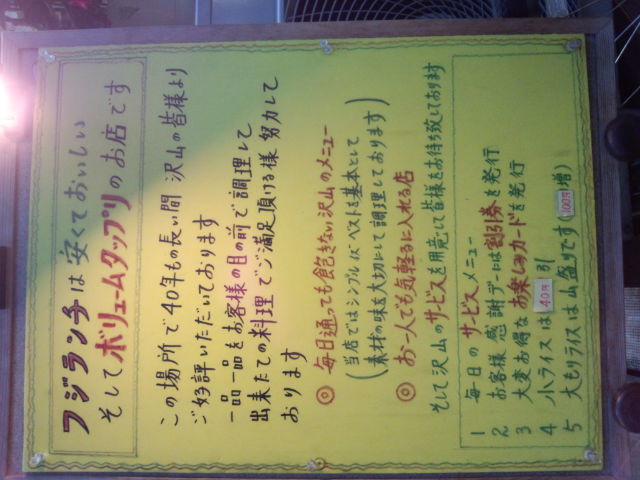 フジランチは安くておいしい
そしてボリュームタップリのお店です
この場所で40年もの長い間 沢山の皆様より
ご好評いただいております
一品一品をお客様の目の前で調理して
出来たての料理でご満足頂ける様 努力して
おります
◎ 毎日通っても飽きない沢山のメニュー
(当店ではシンプル イズ ベストを基本として
素材の味を大切にして調理しております)
◎ お一人でも気軽に入れる店
そして沢山のサービスを用意して皆様をお待ち致しております
毎日のサービスメニュー
1 お客様感謝デーには割引券を発行
2 大変お得なお楽しみカードを発行
3
4 小ライスは 40円 引
5 大もりライスは山盛りです 100円 増)